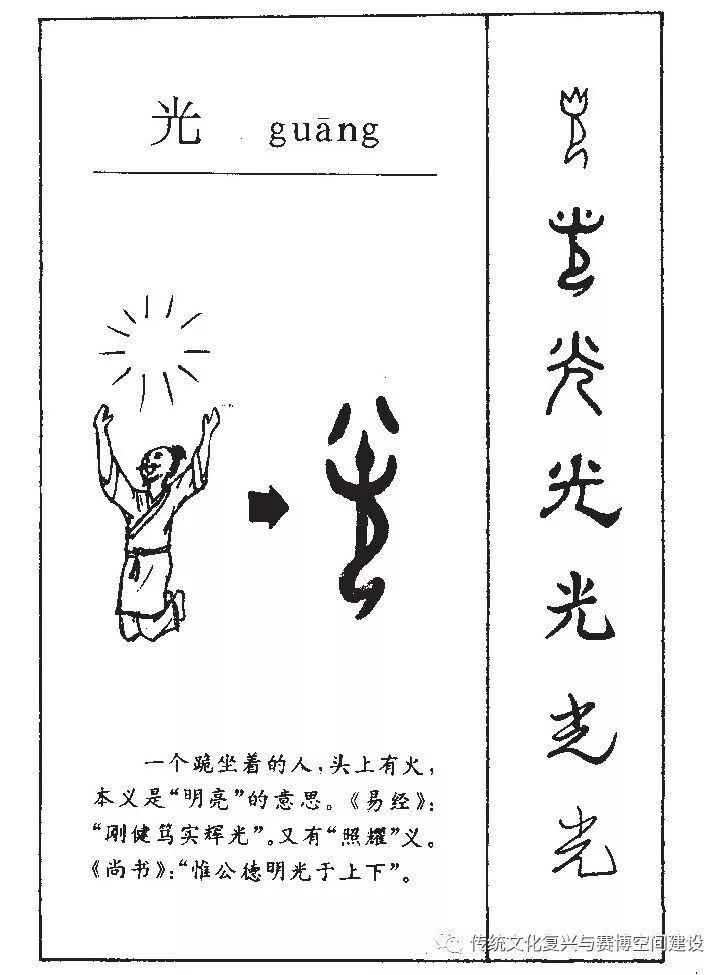 光 guāng
一个跪坐着的人,头上有火,
本义是“明亮”的意思。《易经》:
“刚健笃实辉光”。又有“照耀”义。
《尚书》:“惟公德明光于上下”。
光
光
光
光
光
传统文化复兴与赛博空间建设